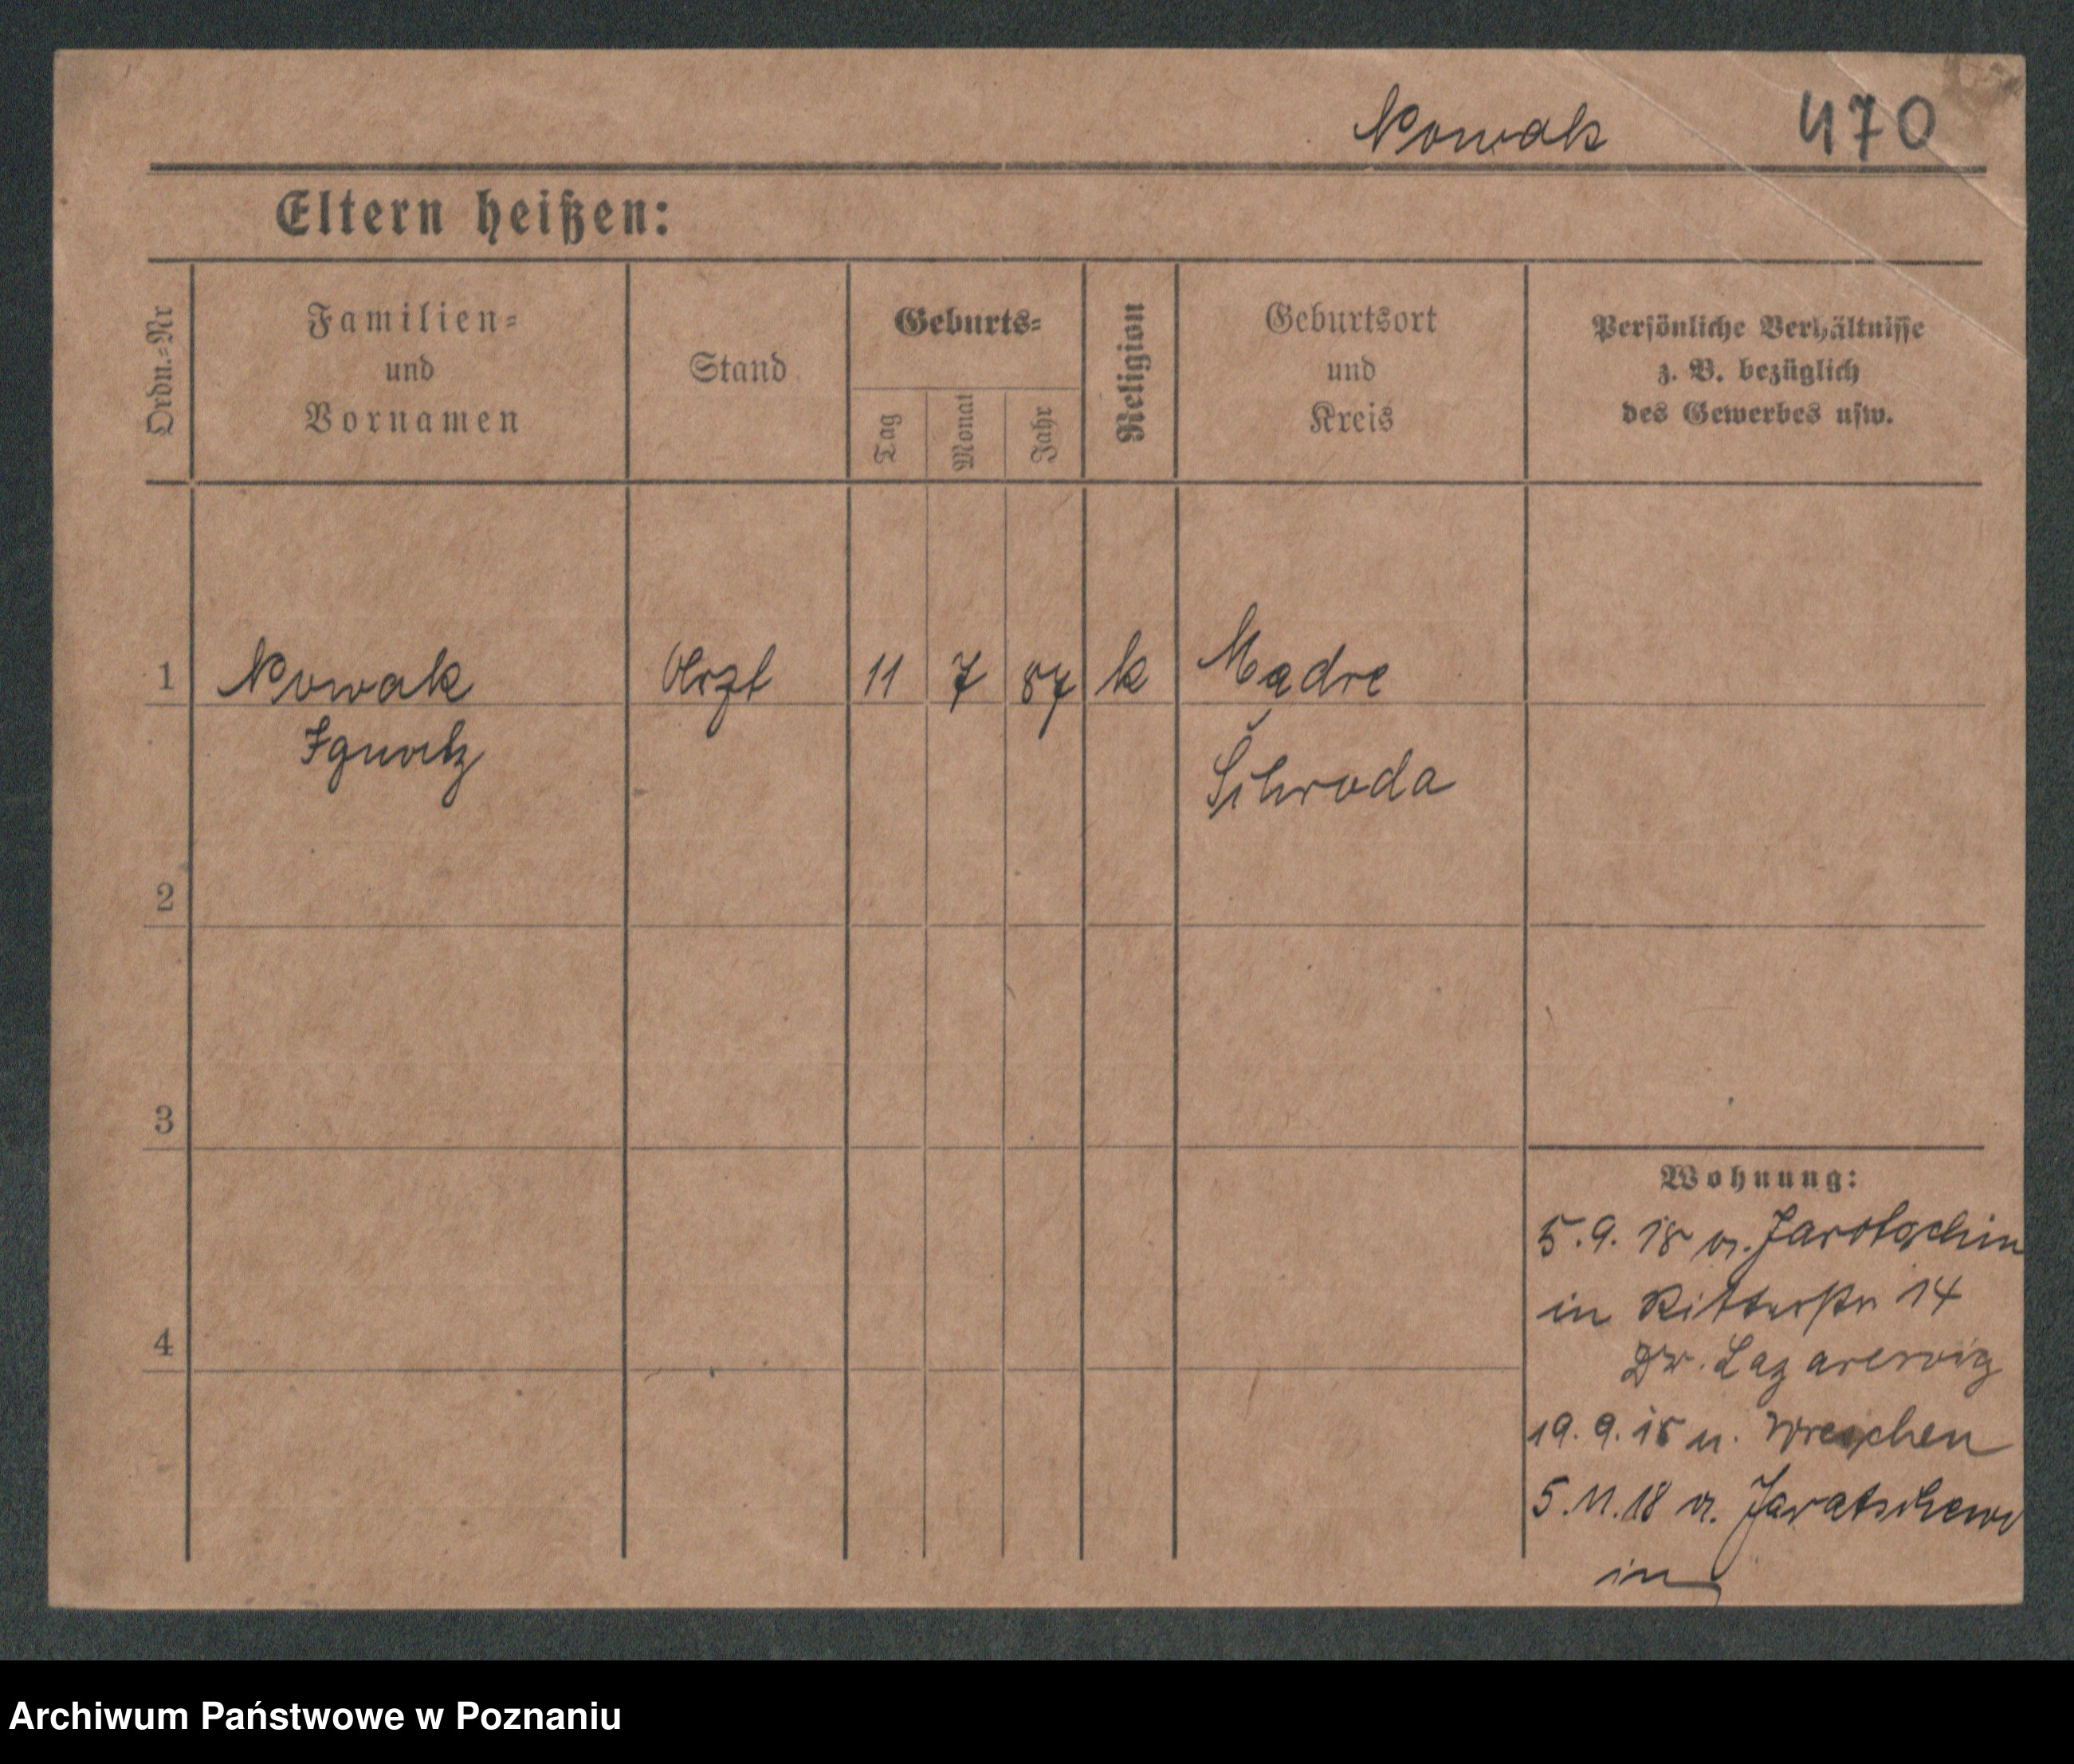 Nowak 470
Eltern heißen:
Ordn.-Nr
Familien-
und
Vornamen
Stand
Geburts-
Tag
Monat
Jahr
Religion
Geburtsort
und
Kreis
Persönliche Verhältnisse
z. B. bezüglich
des Gewerbes usw.
1 Nowak Arzt 11 7 87 k Mądre
Ignatz
Schroda
2
3
4
Wohnung:
5.9.18 v. Jarotschin
in Ritterstr 14
Dr. Lazarewicz
19.9.18 n. Wreschen
5.11.18 v. Jaratschewo
in